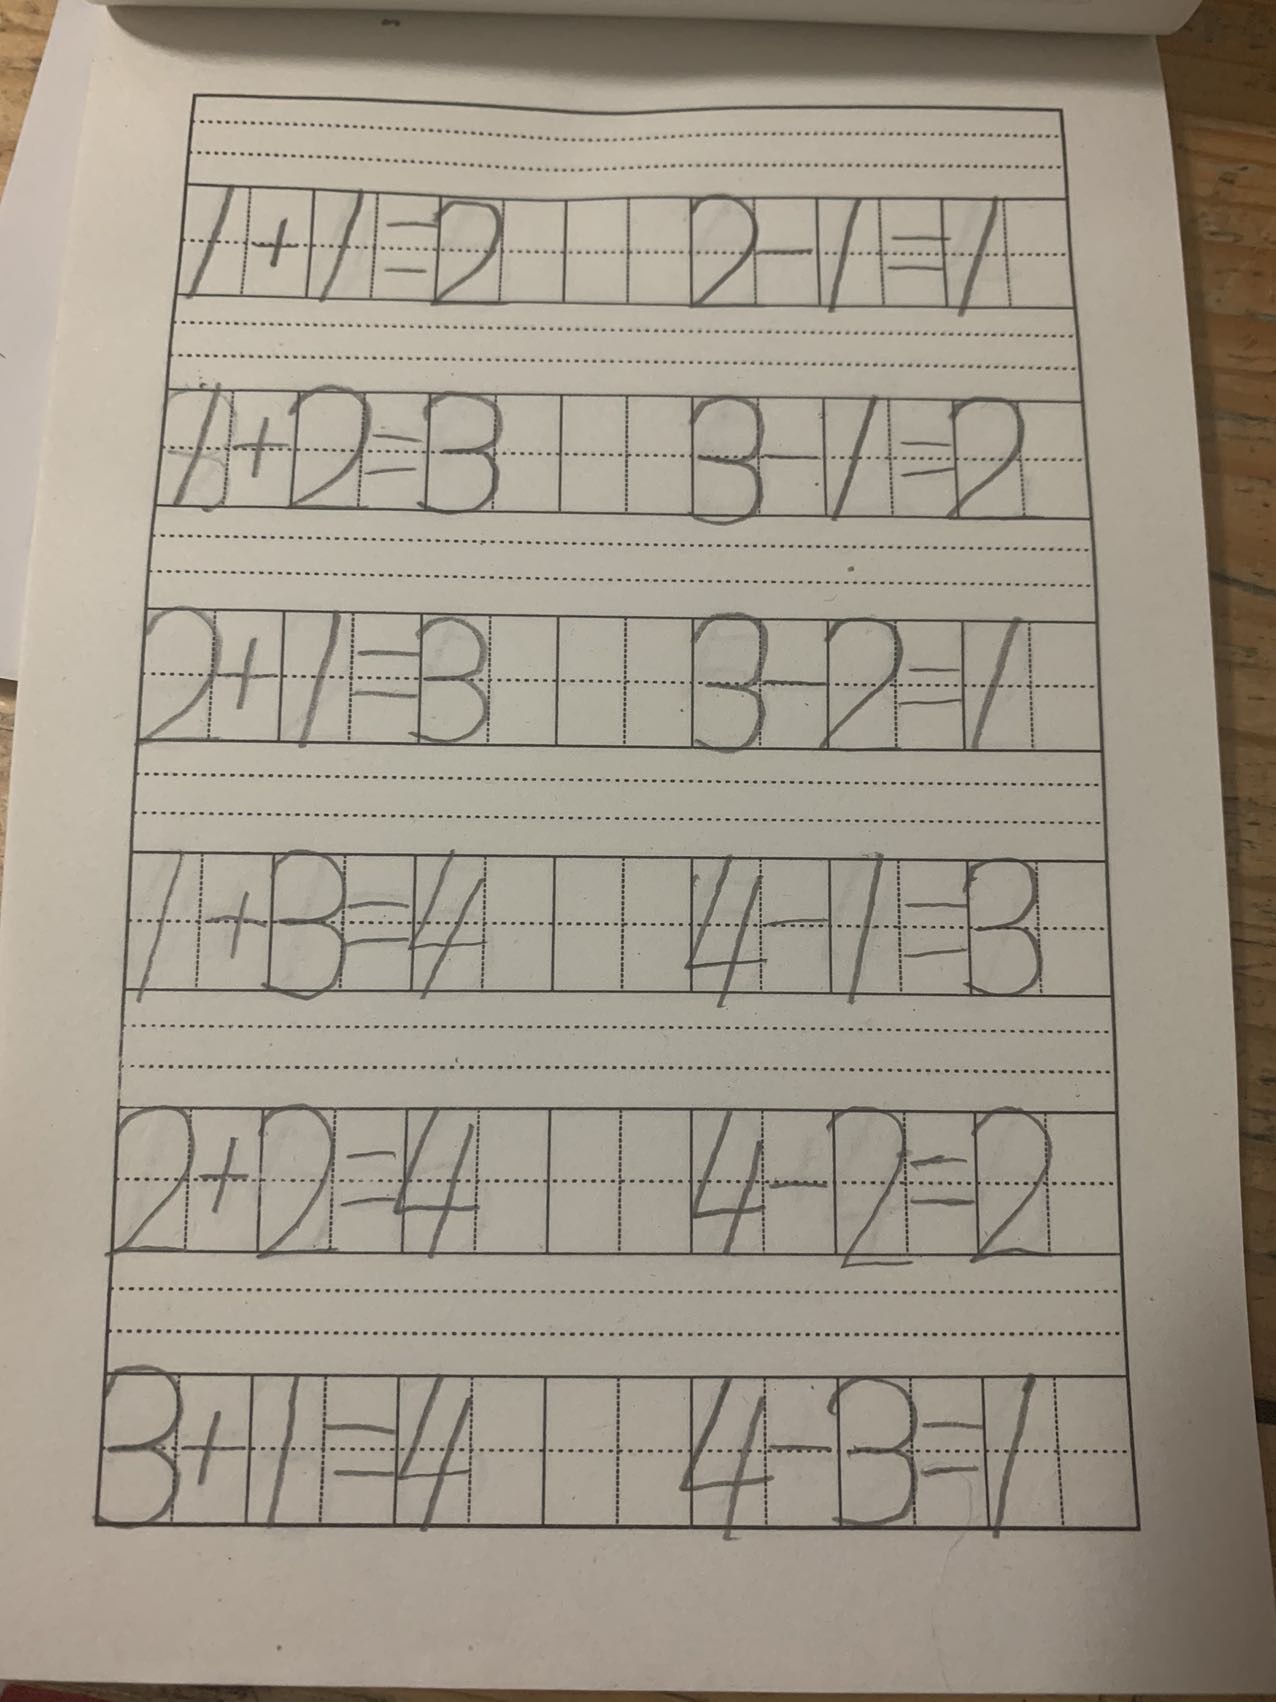 1+1=2 2-1=1
1+2=3 3-1=2
2+1=3 3-2=1
1+3=4 4-1=3
2+2=4 4-2=2
3+1=4 4-3=1